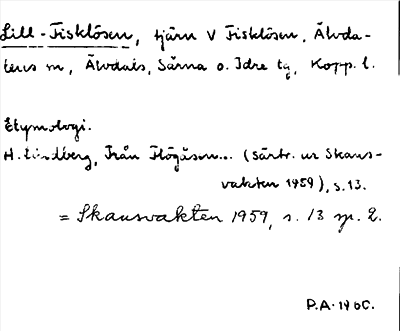 Lill-Fisklösen, tjärn V Fisklösen, Älvda-
lens sn, Älvdals, Särna o. Idre tg, Kopp. l.
Etymologi.
H. Lindberg, Från Flögåsen... (Särtr. ur Skans-
vakten 1959), s. 13.
= Skansvakten 1959, s. 13 sp. 2.
P.A. 1960.